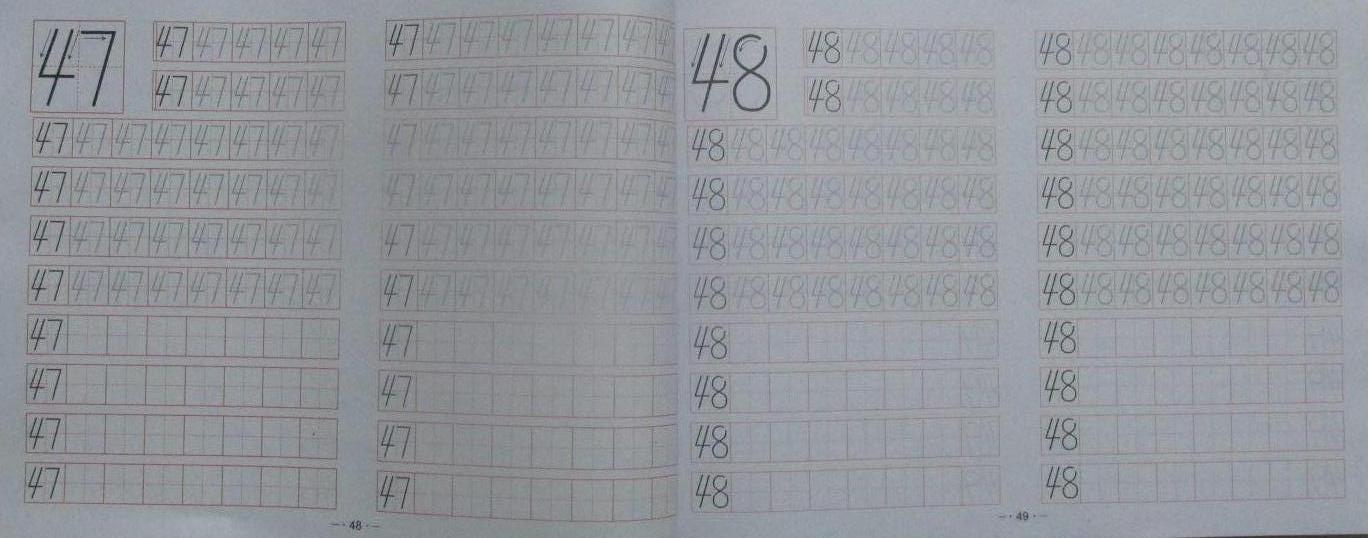 47
47 47 47 47 47
47 47 47 47 47
47 47 47 47 47 47 47 47
47 47 47 47 47 47 47 47
47 47 47 47 47 47 47 47
47 47 47 47 47 47 47 47
47
47
47
47
47 47 47 47 47 47 47 4
47 47 47 47 47 47 47 4
47 47 47 47 47 47 47 4
47 47 47 47 47 47 47 4
47 47 47 47 47 47 47 4
47 47 47 47 47 47 47 4
47
47
47
47
— · 48 · —
48
48 48 48 48 48
48 48 48 48 48
48 48 48 48 48 48 48 48
48 48 48 48 48 48 48 48
48 48 48 48 48 48 48 48
48 48 48 48 48 48 48 48
48
48
48
48
48 48 48 48 48 48 48 48
48 48 48 48 48 48 48 48
48 48 48 48 48 48 48 48
48 48 48 48 48 48 48 48
48 48 48 48 48 48 48 48
48 48 48 48 48 48 48 48
48
48
48
48
— · 49 · —